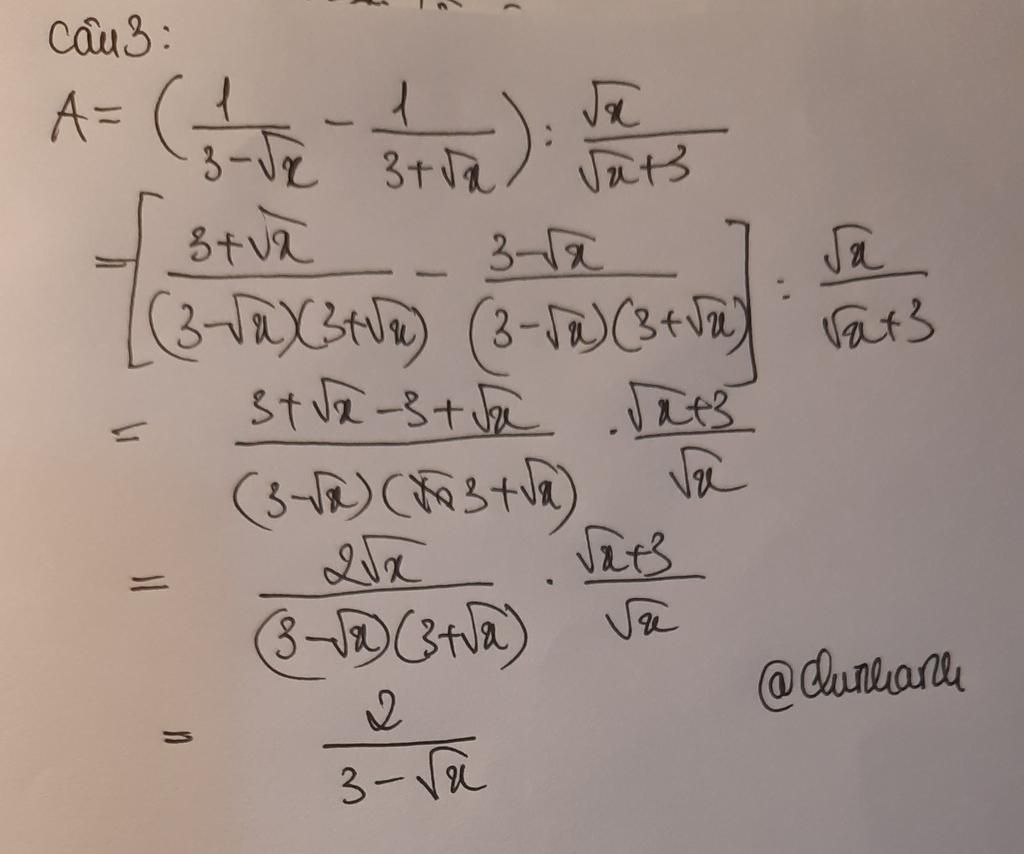 Câu 3:
A = (1/(3-√x) - 1/(3+√x)) : √x/(√x+3)
= [(3+√x)/((3-√x)(3+√x)) - (3-√x)/((3-√x)(3+√x))] : √x/(√x+3)
= (3+√x-3+√x)/((3-√x)(3+√x)) . (√x+3)/√x
= 2√x/((3-√x)(3+√x)) . (√x+3)/√x
= 2/(3-√x)